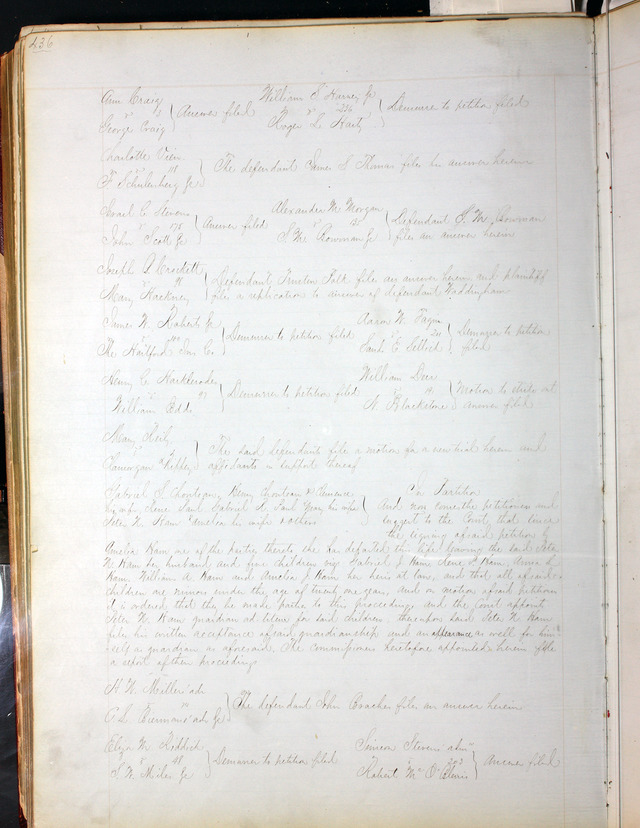 436
Ann Craig
vs
George Craig
Answer filed
William S Harney Jr
vs 236
Roger L. Hart
Demurrer to petition filed
Charlotte
vs
F. Schulenberg Jr
The defendant James S. files his answer herein
Israel C. Stevens
vs 175
John Scott Jr
Answer filed
Alexander M. Morgan
vs
S. M. Bowman Jr
Defendant S. M. Bowman
files an answer herein
Joseph A. Crockett
vs
Mary Hackney
Defendant Trusten Polk files an answer herein and plaintiff
files a replication to answer of defendant Waddingham
James W. Roberts Jr
vs
The Hartford Ins. Co.
Demurrer to petition filed
Aaron W. Fagin
vs
E.
Demurrer to petition
filed
Henry C. Hartlerode
vs
William Edds
Demurrer to petition filed
William Door
vs
N. Blackstone
Motion to strike out
answer filed
Mary
vs
Flannigan
The said defendants file a motion for a new trial herein and
affidavits in support thereof
Gabriel S. Chouteau, Henry Chouteau & Clemence
his wife, Irene Paul, Gabriel R. Paul, his wife
Peter N. Ham, Amelia his wife & others
In Partition
And now come the petitioners and
suggest to the Court, that since
the signing aforesaid petition by
Amelia Ham one of the parties thereto she has departed this life leaving the said Peter
N. Ham her husband and five children viz Gabriel J Ham Irene S Ham, Anna L
Ham, William A Ham and Amelia J Ham her heirs at law, and that all aforesaid
children are minors under the age of twenty one years, and on motion aforesaid petitioners
it is ordered that they be made parties to this proceeding, and the Court appoint
Peter N. Ham, guardian ad litem for said children, thereupon said Peter N. Ham
files his written acceptance aforesaid guardianship and an appearance as well for him
self as guardian as aforesaid. The commissioners heretofore appointed herein file
a report of their proceedings
H. W. Miller's adr
vs
C. L. Biermann's adr Jr
The defendant John files an answer herein
Eliza M. Reddick
vs 48
S. W. Miles Jr
Demurrer to petition filed
Simeon Stevens adm
vs 202
Robert Mc O'Blenis
Answer filed